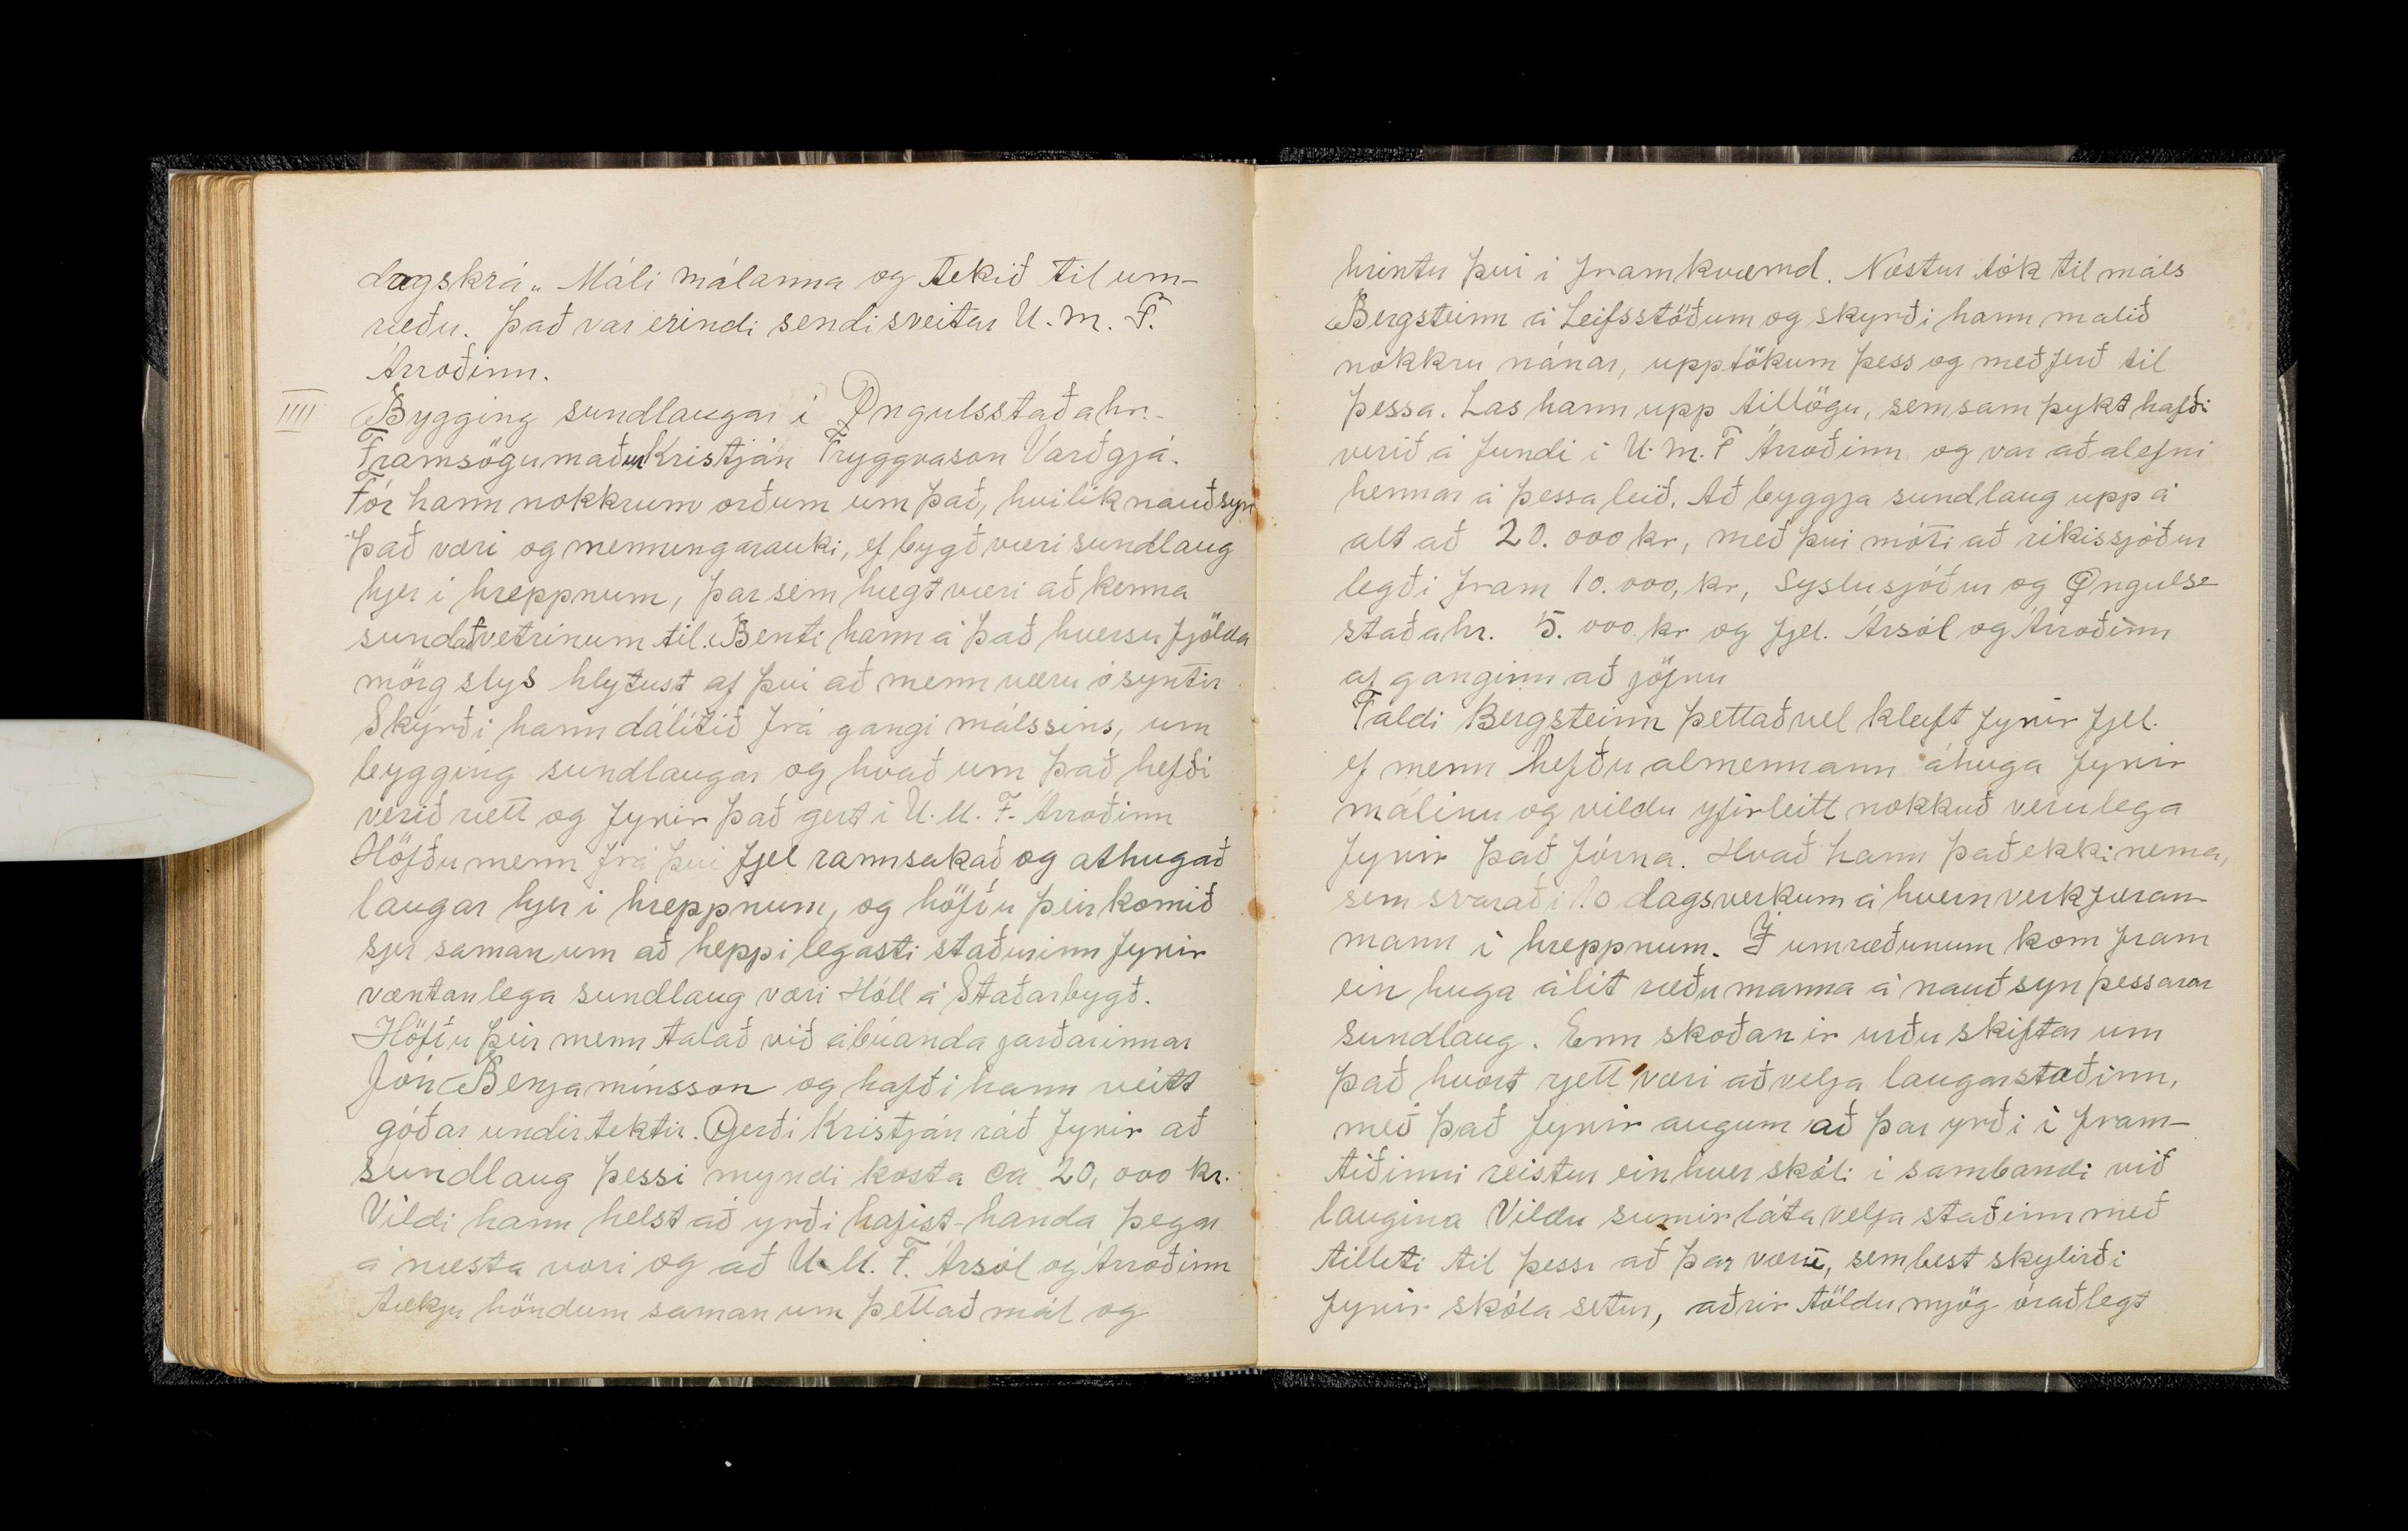 dagskrá „ Máli málanna og tekið til um-
ræðu. Það var erindi sendisveitar U. M. F.
Árroðinn.
IIII Bygging sundlaugar i Öngulsstaðahr.-
Framsögumaður Kristján Tryggvason Varðgjá.
Fór hann nokkrum orðum um það, hvilik nauðsyn
það væri og menningarauki, ef bygð væri sundlaug
hjer i hreppnum, þar sem hægt væri að kenna
sund at vetrinum til. Benti hann á það hversu fjölda
mörg slys hlytust af þvi að menn væru ósyntir
Skýrði hann dálitið frá gangi málssins, um
bygging sundlaugar og hvað um það hefði
verið rætt og fyrir það gert i U. M. F. Árroðinn
Höfðu menn frá þvi fjel rannsakað og athugað
laugar hjer i hreppnum, og höfðu þeir komið
sjer saman um að heppilegasti staðurinn fyrir
væntanlega sundlaug væri Hóll á Staðarbygð.
Höfðu þeir menn talað við ábúanda jarðarinnar
Jón Benjamínsson og hafði hann veitt
góðar undirtektir. Gerði Kristján ráð fyrir að
sundlaug þessi myndi kosta ca 20,000 kr.
Vildi hann helst að yrði hafist-handa þegar
á næsta vori og að U. M. F. Ársól og Árroðinn
tækju höndum saman um þettað mál og
hrintu þvi i framkvæmd. Næstur tók til máls
Bergsteinn á Leifsstöðum og skyrði hann malið
nokkru nánar, upptökum þess og meðferð til
þessa. Las hann upp tillögu, sem samþykt hafði
verið á fundi i U. M. F Árroðinn og var aðalefni
hennar á þessa leið. Að byggja sundlaug upp á
alt að 20.000 kr, með þvi móti að rikissjóður
legði fram 10.000, kr, Syslusjóður og Önguls-
staðahr. 5.000 kr og fjel. Ársól og Árroðinn
afganginn að jöfnu
Taldi Bergsteinn þettað vel kleift fyrir fjel.
ef menn hefðu almennann áhuga fyrir
málinu og vildu yfirleitt nokkuð verulega
fyrir það fórna. Hvað hann það ekki nema,
sem svaraði 10 dagsverkum á hvern verkfæran-
mann i hreppnum. Í umræðunum kom fram
ein huga álit ræðumanna á nauðsyn þessarar
sundlaug. Enn skoðanir urðu skiftar um
það hvort rjett væri að velja laugarstaðinn,
með það fyrir augum að þar yrði i fram-
tiðinni reistur einhver skóli i sambandi við
laugina Vildu sumir láta velja staðinn með
tilliti til þess að þar væri, sem best skylirði
fyrir skóla setur, aðrir töldu mjög óraðlegt